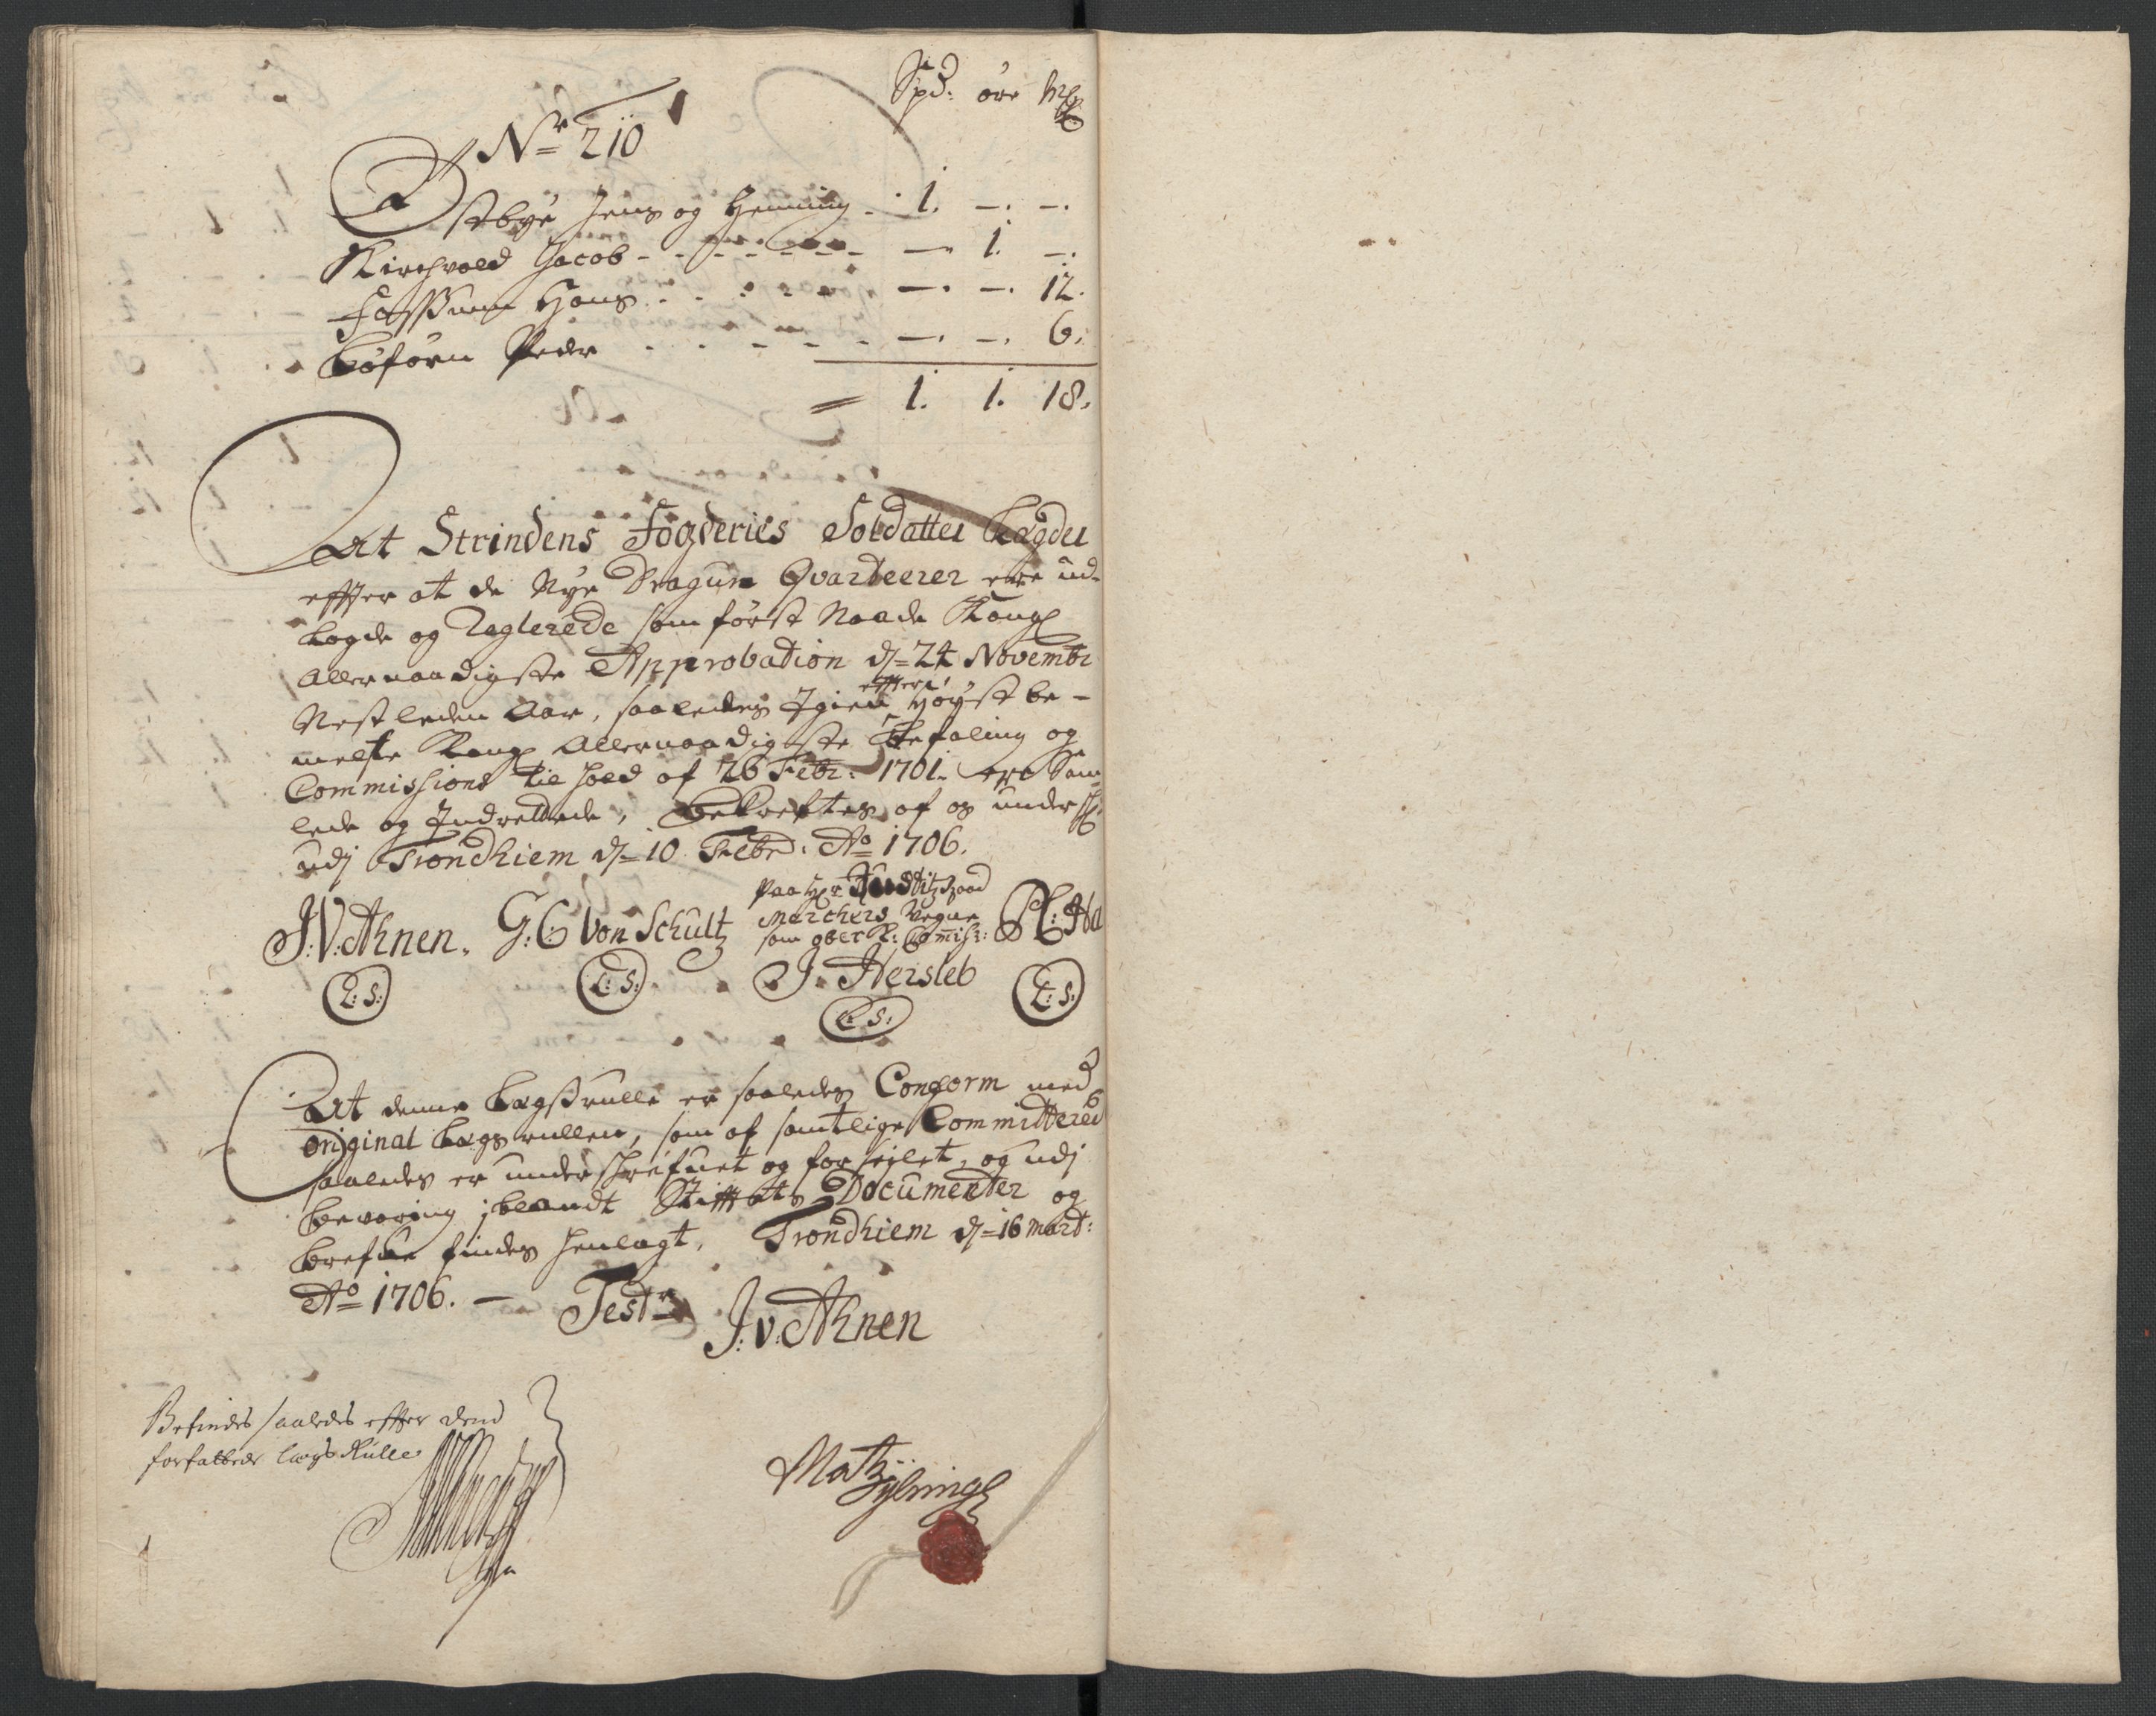 Spd: öre
Nr 210
Østbye Jens og Henning - 1. -. -.
Kirchvold Jacob - - - - - - - - 1. -.
Fossum Hans . . . . . -. -. 12.
Peder . . . . . . -. -. 6.
= 1. 1. 18.
At Strindens Fogderies Soldatter Lægder
effter at de Nye Dragun Qvarteerer ere ud-
lagde og Reglerede som först Naade Kongl
Allernaadigste Approbation d= 24 Novembr
Nestleden Aar, saaledes Igien effter Höyst be-
melte Kongl Allernaadigste Befaling og
Commissions til hold af 26 Febr: 1701. ere Sam-
lede og Indrettede, Bekreftes af os undersch:
udj Trondhiem d= 10 Febr: Ao 1706.
J: V: Ahnen. G: C: von Schultz
Paa Hr Justitz Raad
Merchers Vegne
som ober K: Commiss:
J. Hersleb
L: S: L: S: L: S: L: S:
At denne Lægsrulle er saaledes Conform med
original Lægs rullen, som af samtlige Committerede
saaledes er underschrefuet og forseilet, og udj
bevaring jblandt Stifftets Documenter og
brefue findes henlagt, Trondhiem d= 16 Mart:
Ao 1706. — Test
J: v: Ahnen
Befindes saaledes effter dend
forfattede Lægs Rulle